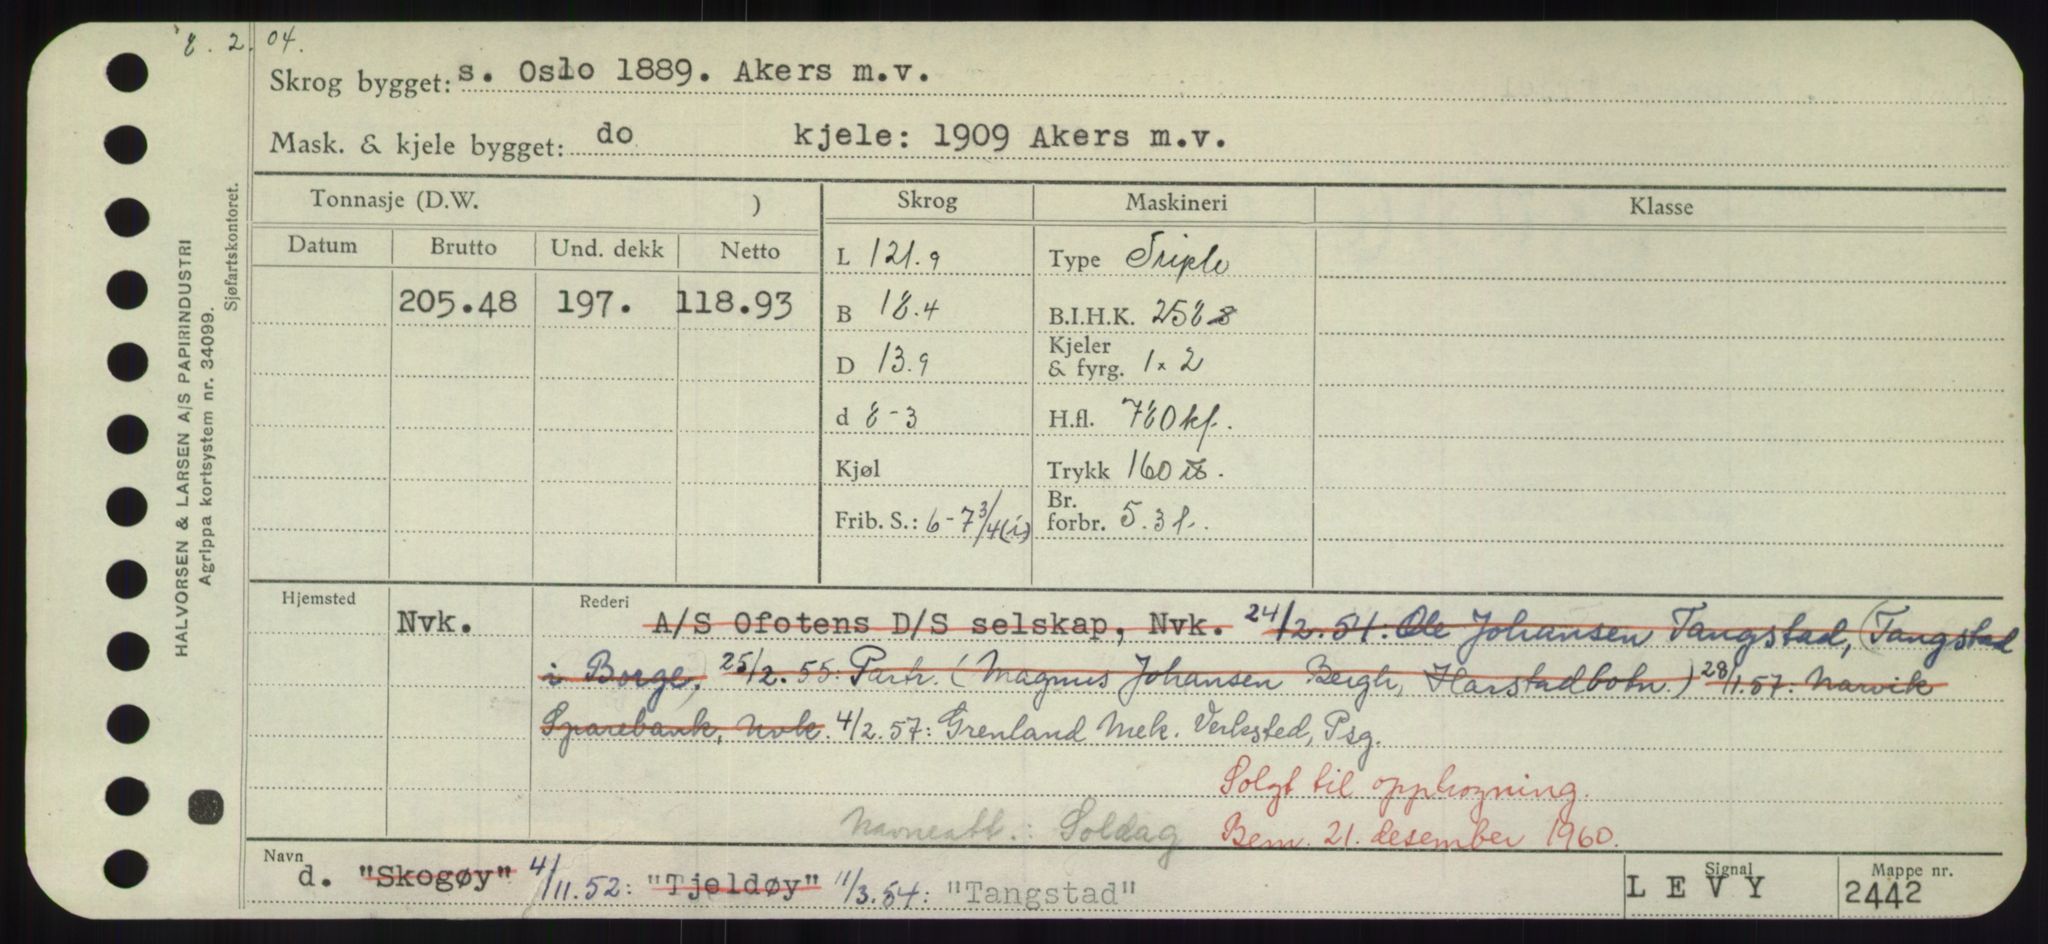 8. 2. 04.
Skrog bygget: s. Oslo 1889. Akers m.v.
Mask. & kjele bygget: do kjele: 1909 Akers m.v.
Tonnasje (D.W. ) Skrog Maskineri Klasse
Datum Brutto Und. dekk Netto
L 121.9 Type Triple
205.48 197. 118.93
B 18.4 B.I.H.K. 258
D 13.9 Kjeler & fyrg. 1 x 2
d 8-3 H.fl. 780 kf.
Kjøl Trykk 160 lb.
Frib. S.: 6-7 3/4 (i) Br. forbr. 5.3 t.
Hjemsted Nvk. Rederi A/S Ofotens D/S selskap, Nvk. 24/2.54: Ole Johansen Tangstad, (Tangstad
i Borge, 25/2.55: Partr. (Magnus Johansen Bergh, Harstadbotn.) 28/1.57: Narvik
Sparebank, Nvk. 4/2.57: Grenland Mek. Verksted, Psg.
Solgt til opphogning.
Navneatt.: Soldag Bem. 21. desember 1960.
Navn d. "Skogøy" 4/11.52: "Tjeldøy" 11/3.54: "Tangstad"
Signal L E V Y
Mappe nr. 2442
HALVORSEN & LARSEN A/S PAPIRINDUSTRI
Agrippa kortsystem nr. 34099.
Sjøfartskontoret.